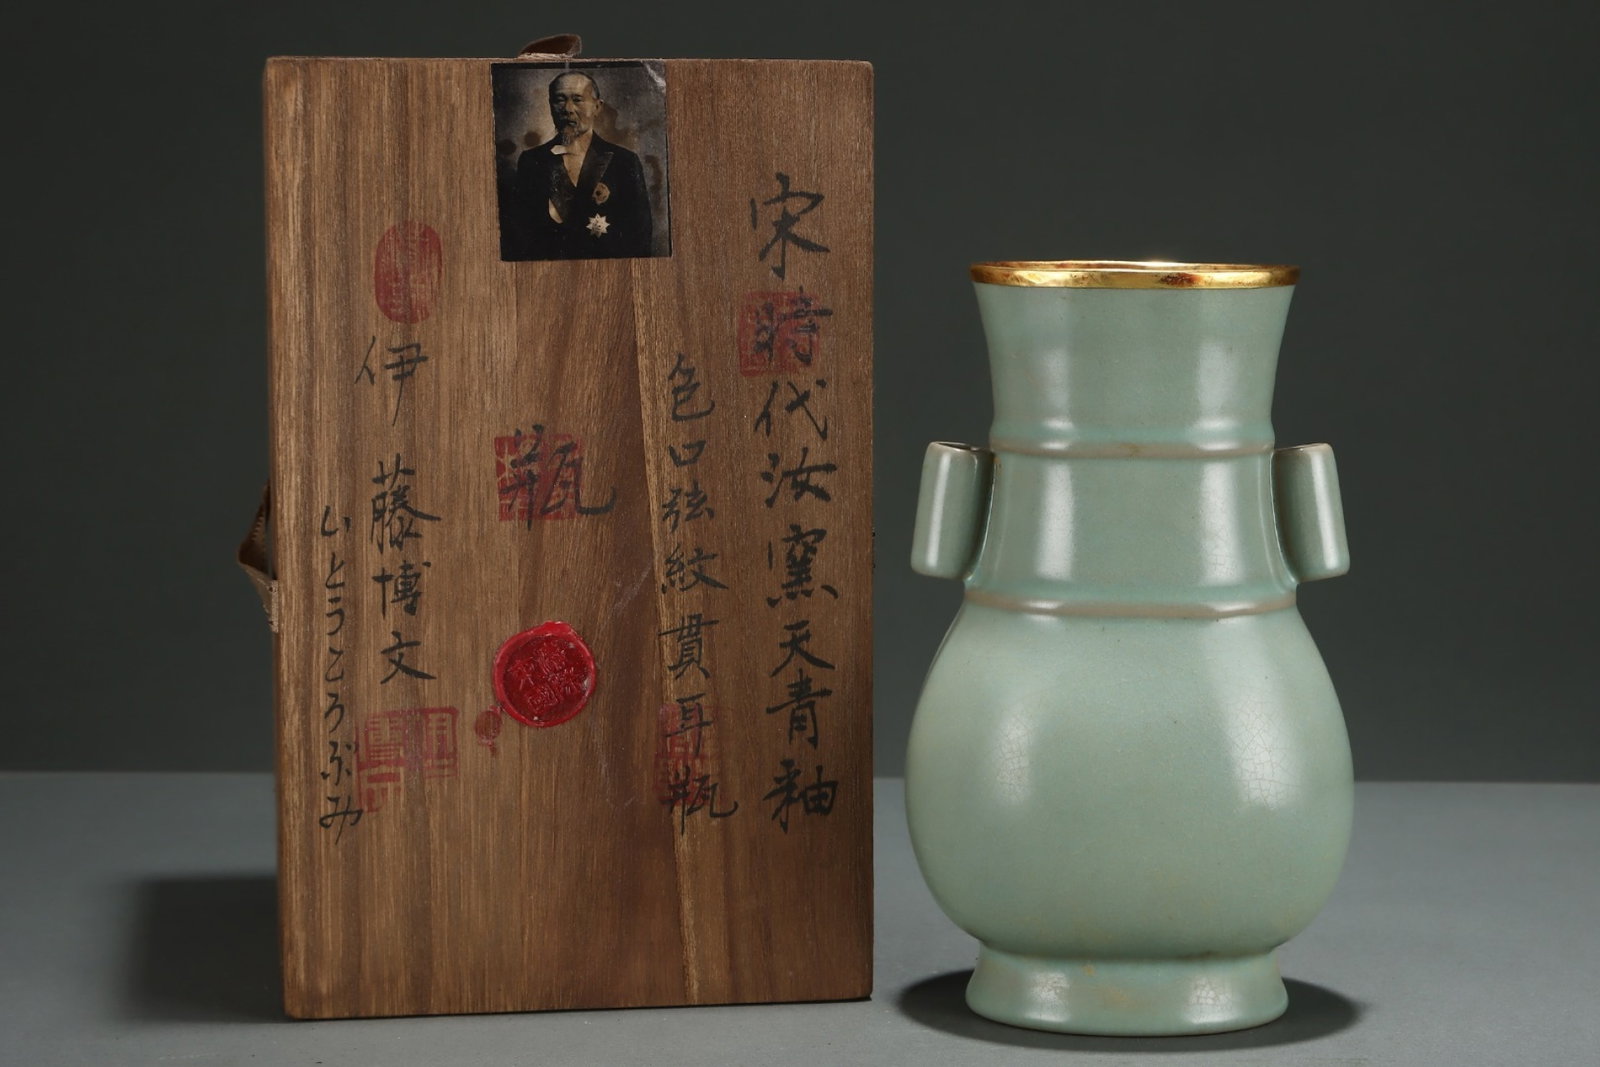 宋時代汝窯天青釉
色口弦紋貫耳瓶
瓶
伊藤博文
いとうころぶみ